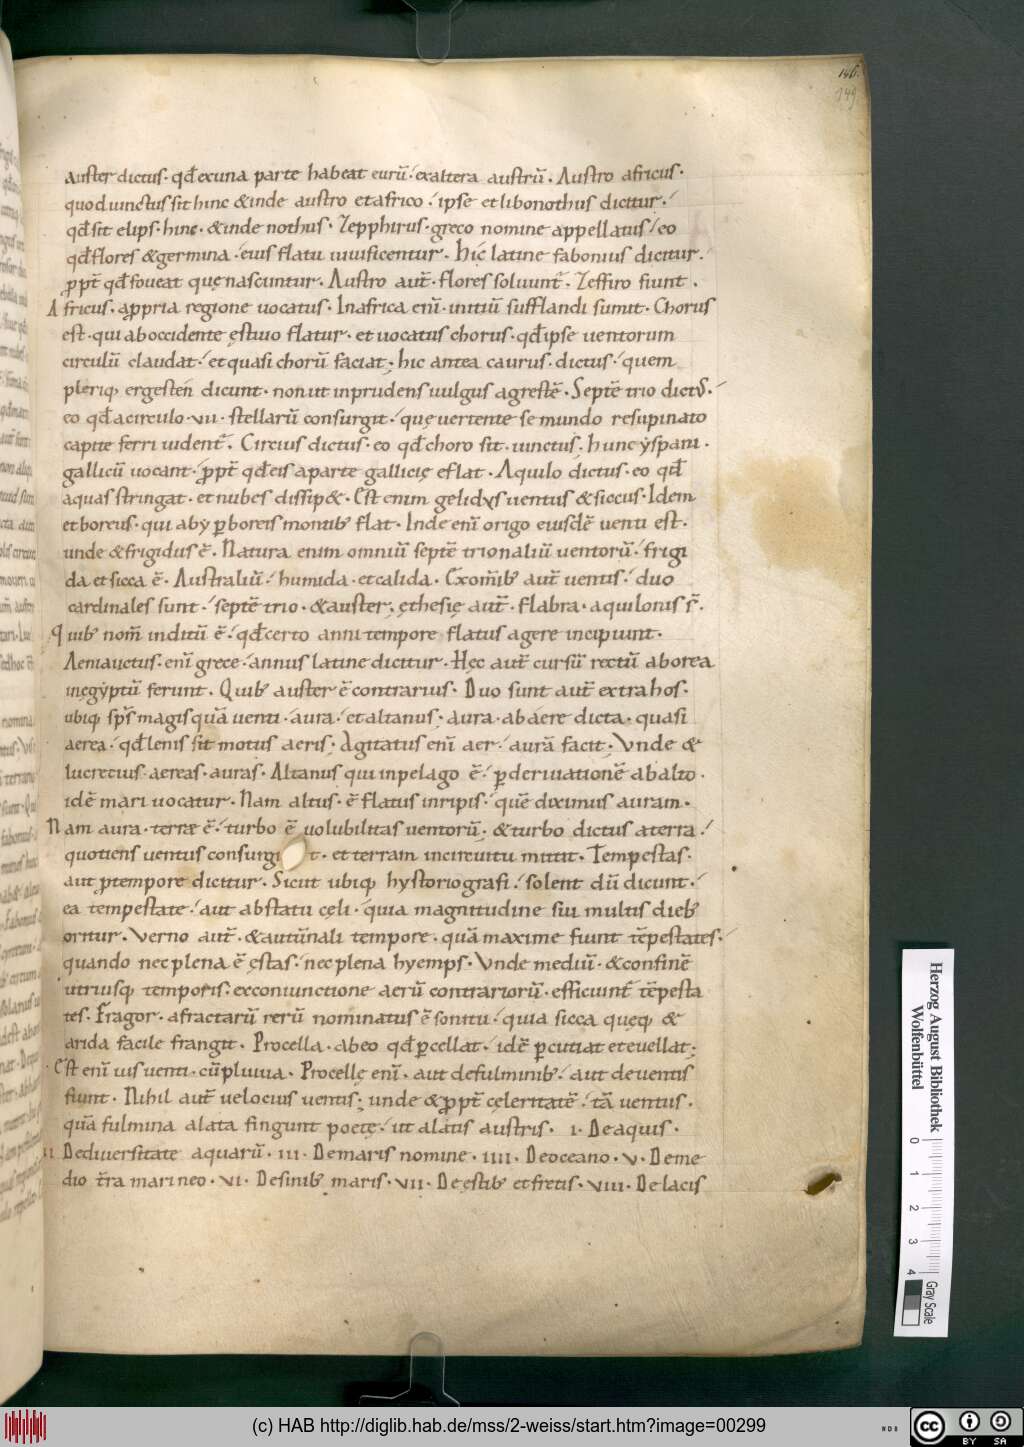 146.
149
auster dictus · qđ exuna parte habeat eurū ·́ exaltera austrū · Austro africus ·
quod iunctus sit hinc & inde austro et africo ·́ ipse et libonothus dicitur ·́
qđ sit elips · hinc · & inde nothus · Zepphirus · greco nomine appellatus ·́ eo
qđ flores & germina · eius flatu uiuificentur · hic latine fabonius dicitur ·́
ꝓpt̄ qđ foueat quę nascuntur · Austro aut̄ · flores soluunt̄ · Zeffiro fiunt ·
Africus · apꝓria regione uocatus · Inafrica enī · initiū sufflandi sumit · Chorus
est · qui aboccidente ęstiuo flatur · et uocatus chorus · qđ ipse uentorum
circulū claudat ·́ et quasi chorū faciat ; hic antea caurus · dictus ·́ quem
pleriq; ergesten dicunt · non ut inprudens uulgus agrestē · Septē trio dictus ·́
eo qđ acirculo · vii · stellarū consurgit ·́ quę uertente se mundo resupinato
capite ferri uident̄ · Circius dictus · eo qđ choro sit · iunctus ; hunc ẏspani ·
gallicū uocant ·́ ꝓpt̄ qđ eis aparte gallicię eflat · Aquilo dictus · eo qđ
aquas stringat · et nubes dissip& · Est enim gelidus uentus & siccus · Idem
et boreus · qui abẏꝑboreis montib; flat · Inde enī origo eiusdē uenti est ·
unde & frigidus ē · Natura enim omniū septē trionaliū uentorū ·́ frigi
da et sicca ē · Australiū ·́ humida · et calida · Exom̄ib; aut̄ uentis ·́ duo
cardinales sunt ·́ septē trio · & auster ; ęthesię aut̄ · flabra · aquilonis s̄ ·
Quib; nom̄ inditū ē ·́ qđ certo anni tempore flatus agere incipiunt ·
Aeniauctus · enī grece · annus latine dicitur · Hęc aut̄ cursū rectū aborea
inęgẏptū ferunt · Quib; auster ē contrarius · Duo sunt aut̄ extra hos ·
ubiq; sp̄s magis quā uenti · aura ·́ et altanus · aura · ab aere dicta · quasi
aerea ·́ qđ lenis sit motus aeris ; Agitatus enī aer ·́ aurā facit ; Vnde &
lucretius · aereas · auras · Altanus qui inpelago ē ·́ ꝑ deriuationē abalto ·
idē mari uocatur · Nam altus · ē flatus inripis ·́ quē diximus auram ·
Nam aura · terræ ē ·́ turbo ē uolubilitas uentorū ; & turbo dictus aterra ·́
quotiens uentus consurgit · et terram incircuitu mittit · Tempestas ·
aut ꝓtempore dicitur · Sicut ubiq; hystoriografi ·́ solent dū dicunt ·́
ea tempestate ·́ aut abstatu cęli ·́ quia magnitudine sui multis dieb;
oritur · Verno aut̄ · & autūnali tempore · quā maxime fiunt tēpestates ·́
quando nec plena ē ęstas ·́ nec plena hyemps · Vnde mediū · & confinē
utriusq; temporis · exconiunctione aerū contrariorū · efficiunt̄ tēpesta
tes · Fragor · afractarū rerū nominatus ē sonitu ·́ quia sicca quęq; &
arida facile frangit · Procella · abeo qđ ꝑcellat ·́ idē ꝑcutiat et euellat ;
Est enī uis uenti · cū pluuia · Procellę enī · aut defulminib; ·́ aut de uentis
fiunt · Nihil aut̄ uelocius uentis ; unde & ꝓpt̄ cęleritatē ·́ tā uentus ·
quā fulmina alata fingunt poetę ·́ ut alatis austris · I · De aquis ·
II Dediuersitate aquarū · III · Demaris nomine · IIII · Deoceano · V · Deme
dio t̄ra marineo · VI · Desinib; maris · VII · De ęstib; et fretis · VIII · De lacis
Herzog August Bibliothek
Wolfenbüttel
0 1 2 3 4
Gray Scale
(c) HAB http://diglib.hab.de/mss/2-weiss/start.htm?image=00299
WDB
cc BY SA